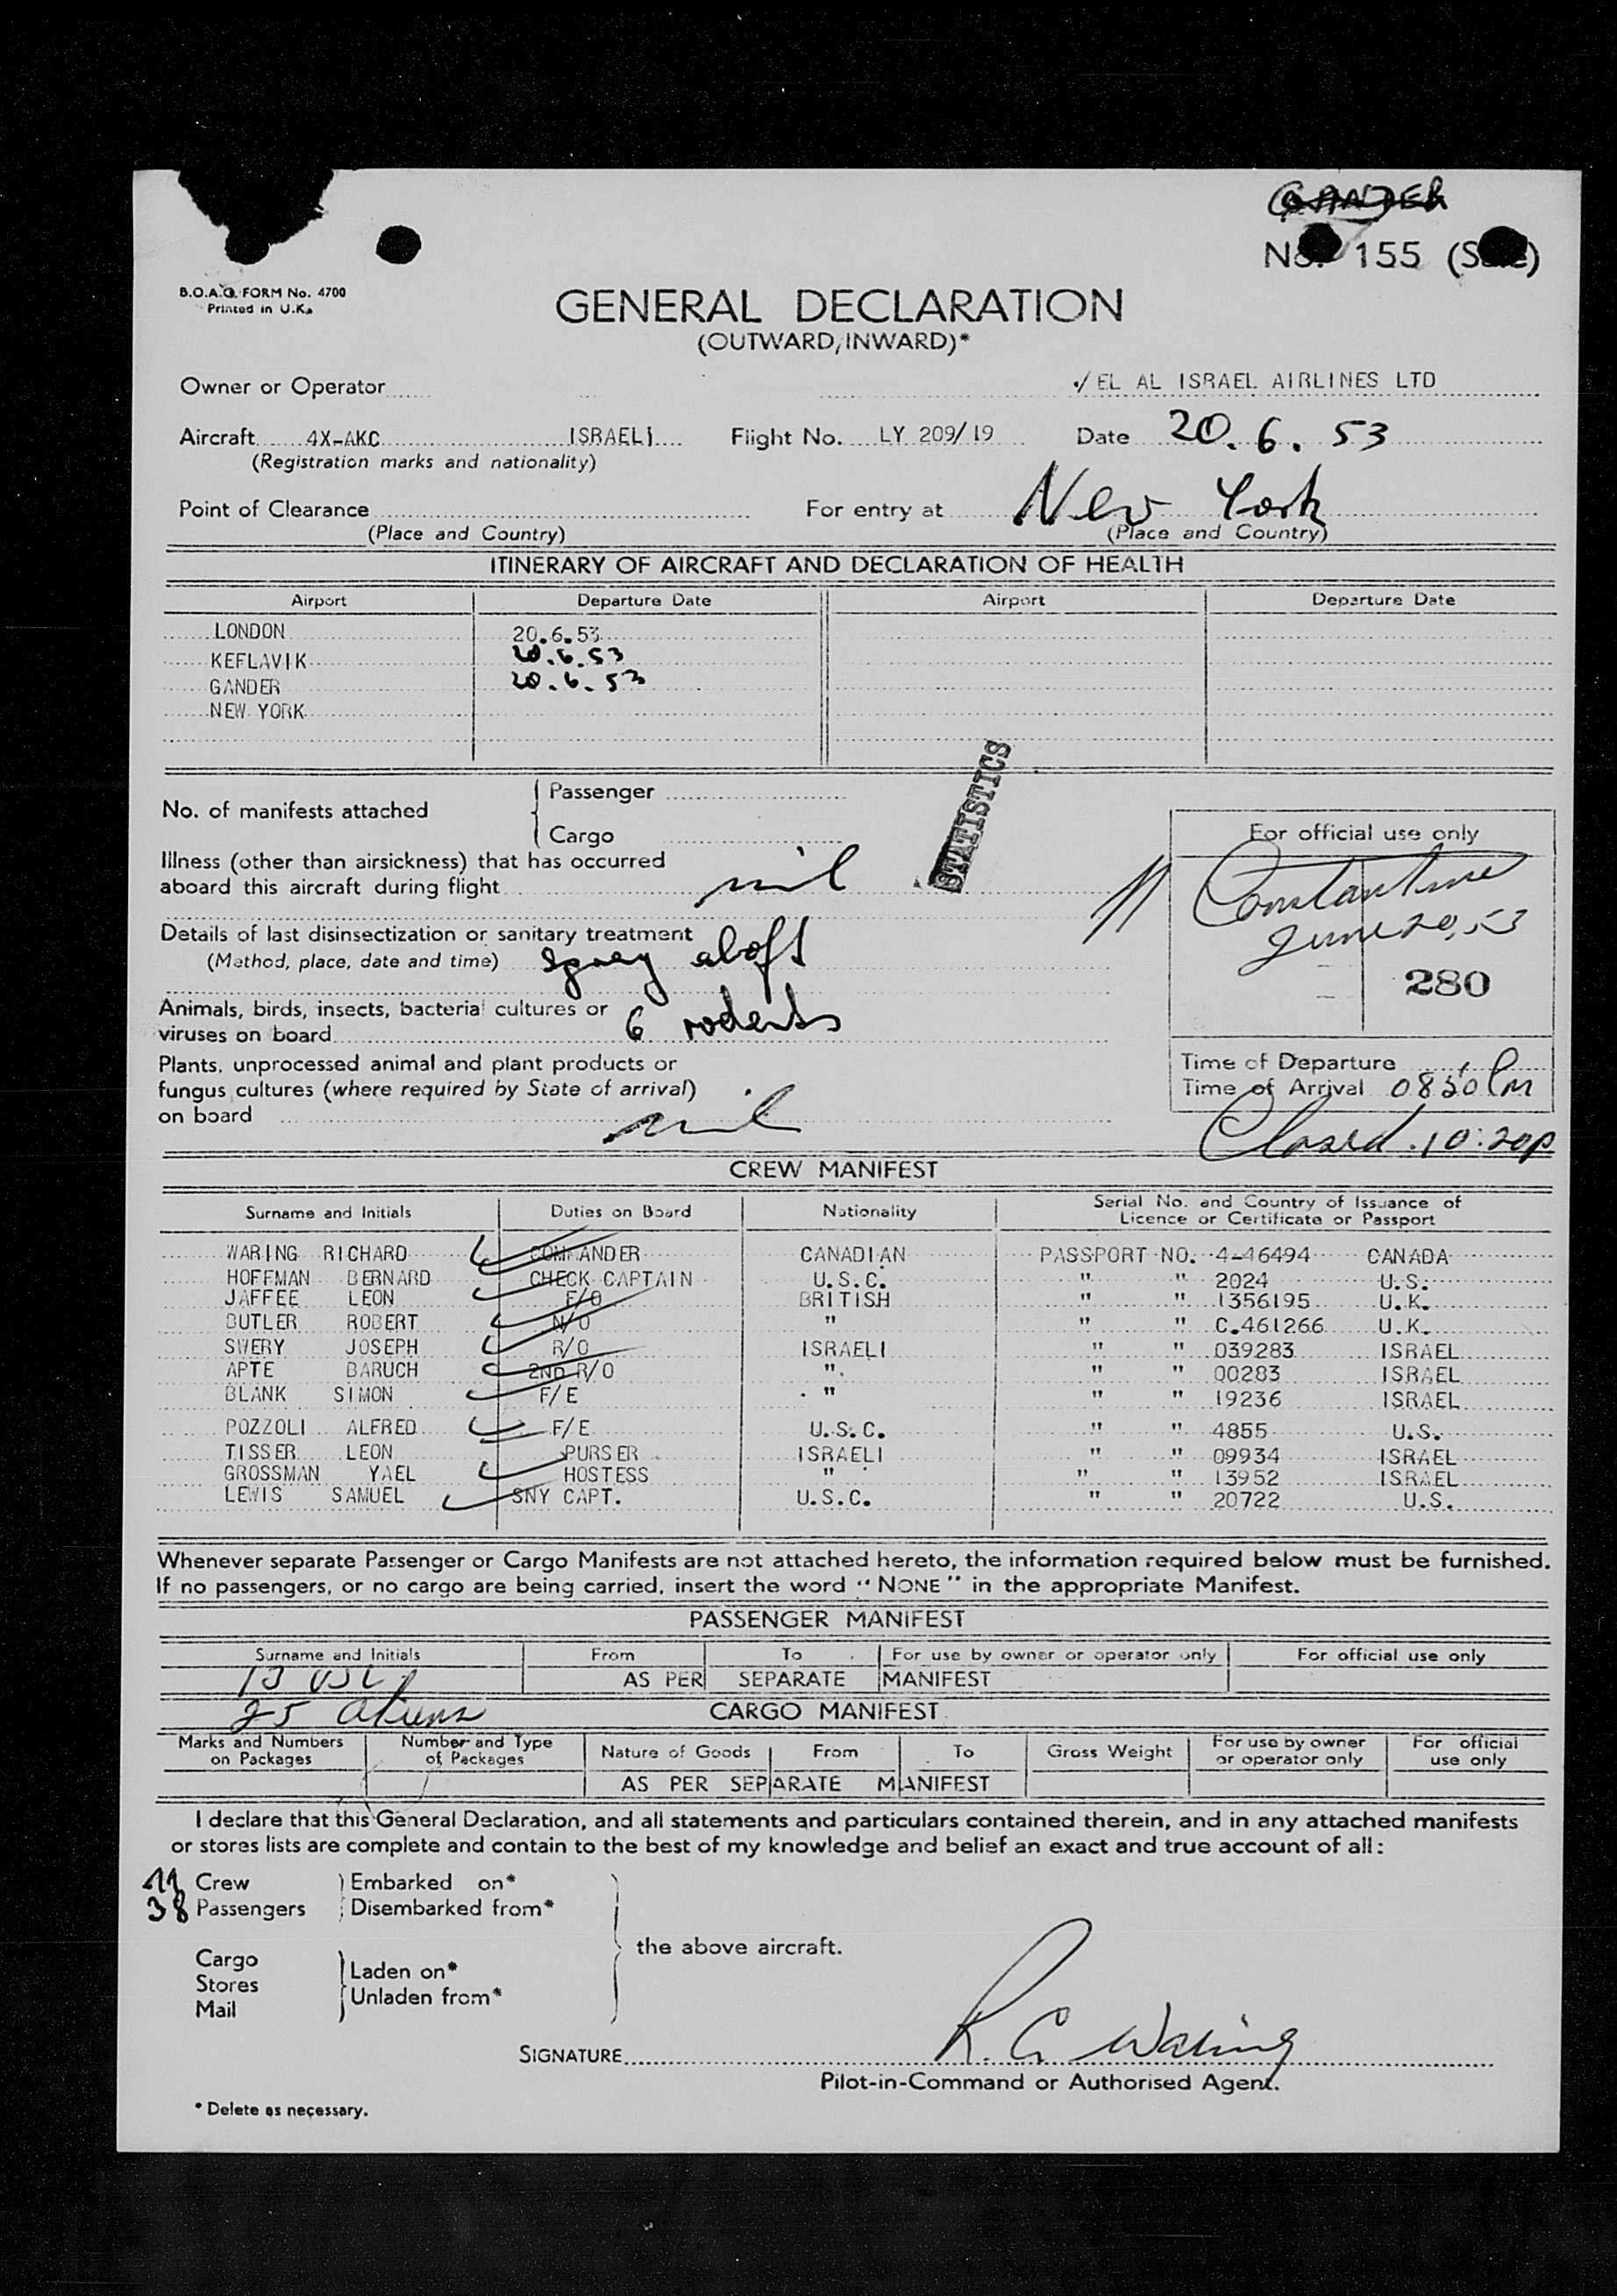 GANDER
No. 155 (Sale)
B.O.A.C. FORM No. 4700
Printed in U.K.
GENERAL DECLARATION
(OUTWARD/INWARD)*
Owner or Operator EL AL ISRAEL AIRLINES LTD
Aircraft 4X-AKC ISRAELI Flight No. LY 209/19 Date 20.6.53
(Registration marks and nationality)
Point of Clearance For entry at New York
(Place and Country) (Place and Country)
ITINERARY OF AIRCRAFT AND DECLARATION OF HEALTH
Airport Departure Date Airport Departure Date
LONDON 20.6.53
KEFLAVIK 20.6.53
GANDER 20.6.53
NEW YORK
STATISTICS
No. of manifests attached
Passenger
Cargo
Illness (other than airsickness) that has occurred
aboard this aircraft during flight nil
Details of last disinsectization or sanitary treatment
(Method, place, date and time) spray aloft
Animals, birds, insects, bacterial cultures or
viruses on board 6 rodents
Plants, unprocessed animal and plant products or
fungus cultures (where required by State of arrival)
on board nil
For official use only
Constantine
June 20, 53
280
Time of Departure
Time of Arrival
Closed 10:20p
CREW MANIFEST
Surname and Initials Duties on Board Nationality Serial No. and Country of Issuance of
Licence or Certificate or Passport
WARING RICHARD COMMANDER CANADIAN PASSPORT NO. 4-46494 CANADA
HOFFMAN BERNARD CHECK CAPTAIN U.S.C. " " 2024 U.S.
JAFFEE LEON F/O BRITISH " " 1356195 U.K.
BUTLER ROBERT N/O " " " C.461266 U.K.
SWERY JOSEPH R/O ISRAELI " " 039283 ISRAEL
APTE BARUCH 2ND R/O " " " 00283 ISRAEL
BLANK SIMON F/E " " " 19236 ISRAEL
POZZOLI ALFRED F/E U.S.C. " " 4855 U.S.
TISSER LEON PURSER ISRAELI " " 09934 ISRAEL
GROSSMAN YAEL HOSTESS " " " 13952 ISRAEL
LEWIS SAMUEL SNY CAPT. U.S.C. " " 20722 U.S.
Whenever separate Passenger or Cargo Manifests are not attached hereto, the information required below must be furnished.
If no passengers, or no cargo are being carried, insert the word "NONE" in the appropriate Manifest.
PASSENGER MANIFEST
Surname and Initials From To For use by owner or operator only For official use only
13 USC AS PER SEPARATE MANIFEST
25 aliens
CARGO MANIFEST
Marks and Numbers on Packages Number and Type of Packages Nature of Goods From To Gross Weight For use by owner or operator only For official use only
AS PER SEPARATE MANIFEST
I declare that this General Declaration, and all statements and particulars contained therein, and in any attached manifests
or stores lists are complete and contain to the best of my knowledge and belief an exact and true account of all:
11 Crew Embarked on*
38 Passengers Disembarked from*
the above aircraft.
Cargo
Stores
Mail
Laden on*
Unladen from*
SIGNATURE R. C. Waring
Pilot-in-Command or Authorised Agent.
* Delete as necessary.